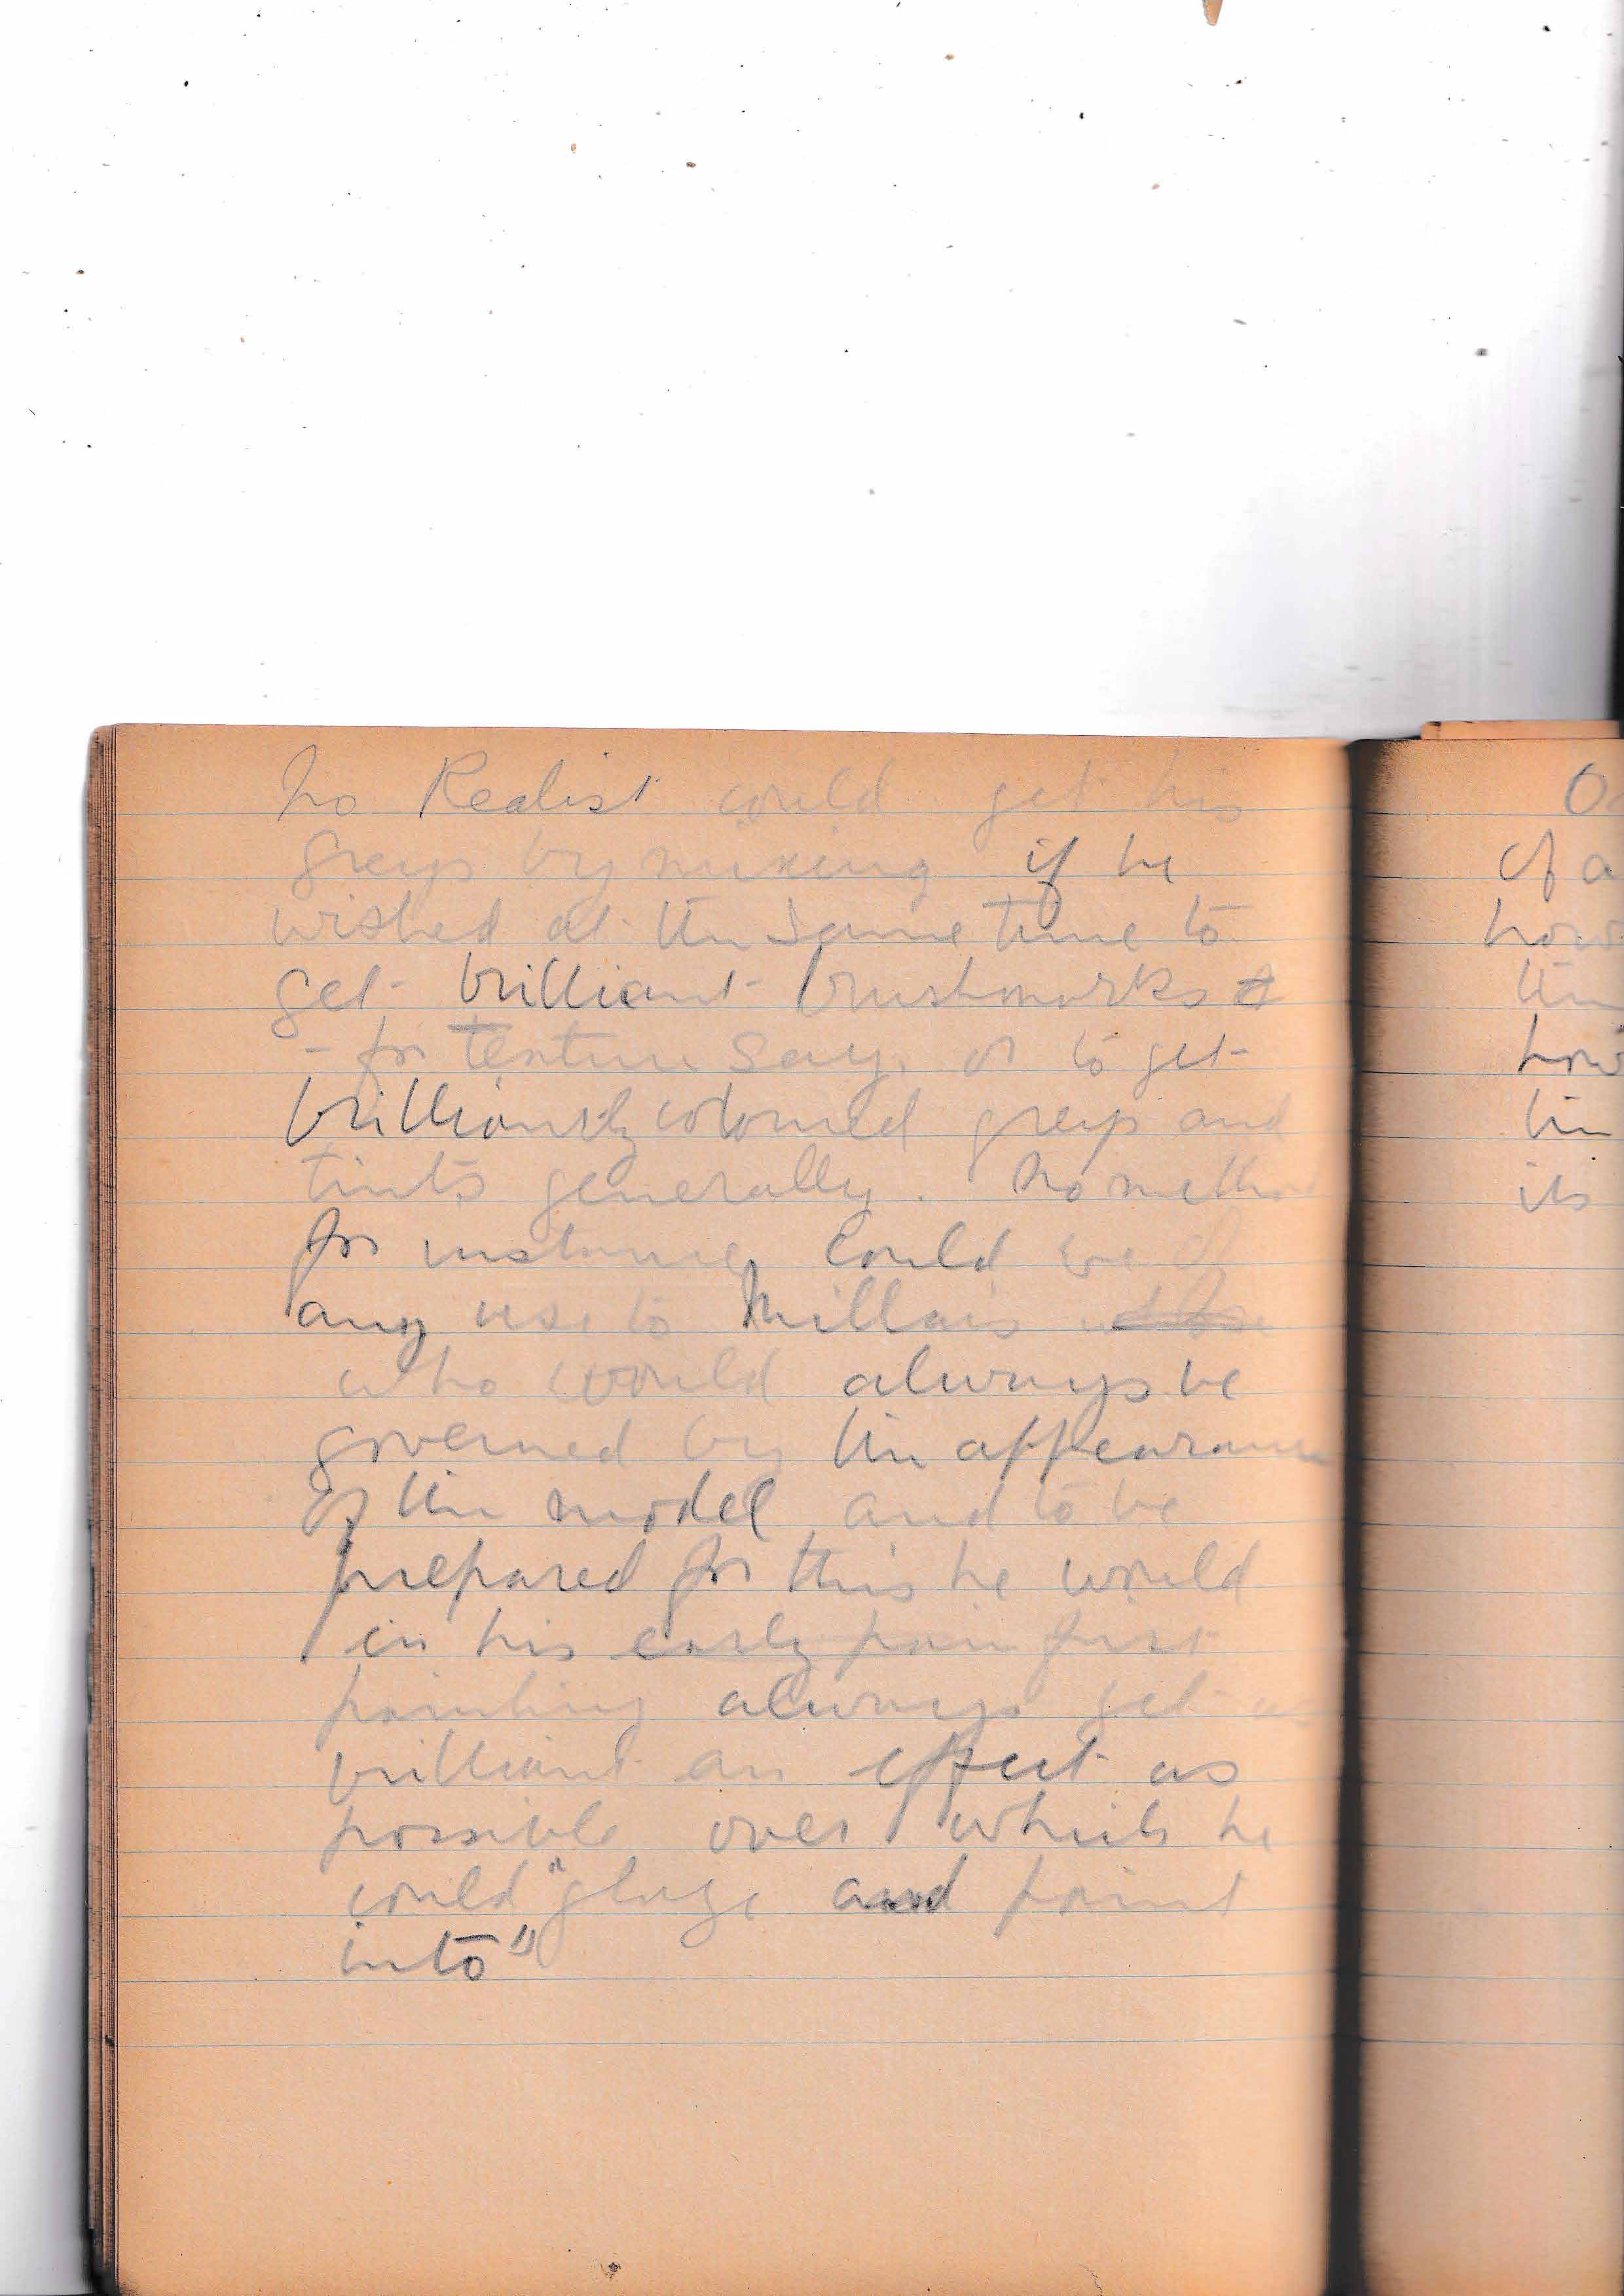 No Realist could get his
greys by mixing if he
wished at the same time to
get brilliant brushmarks
- for texture say, or to get
brilliantly coloured greys and
tints generally. No method
for instance, could be of
any use to Millais
who would always be
governed by the appearance
of the model and to be
prepared for this he would
in his early first
painting always get as
brilliant an effect as
possible over which he
could "glaze and paint
into"
O
of a
how
the
how
its